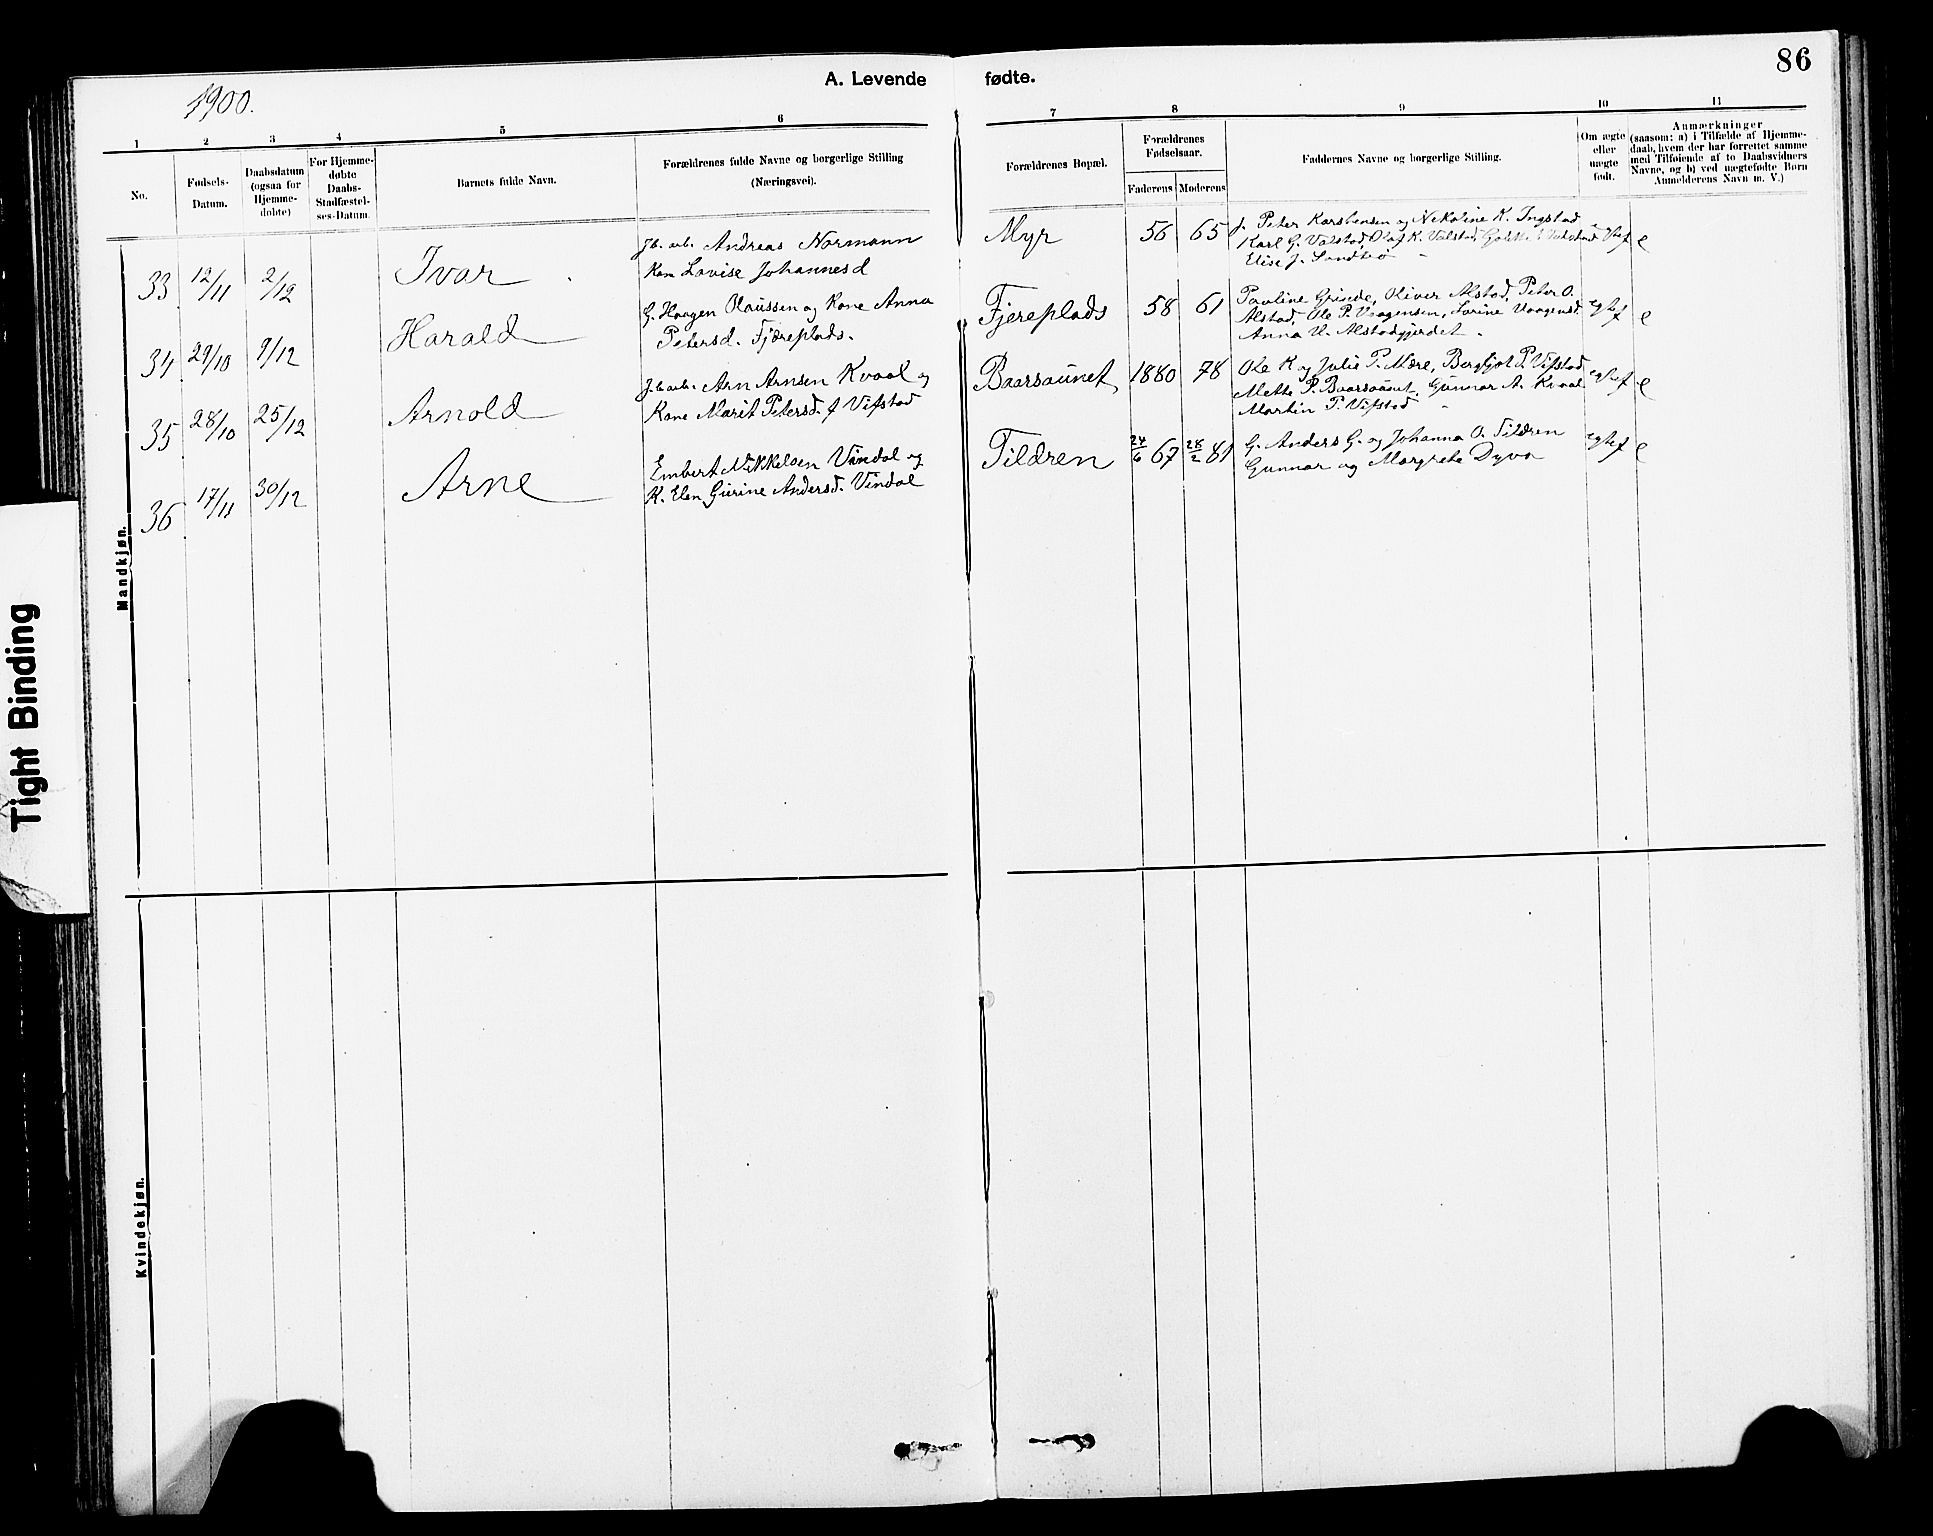 86
A. Levende fødte.
1900.
1 2 3 4 5 6 7 8 9 10 11
No.
Fødsels-
Datum.
Daabsdatum
(ogsaa for
Hjemme-
døbte)
For Hjemme-
døbte
Daabs-
Stadfæstel-
ses-Datum.
Barnets fulde Navn.
Forældrenes fulde Navne og borgerlige Stilling
(Næringsvei).
Forældrenes Bopæl.
Forældrenes
Fødselsaar.
Faderens Moderens
Faddernes Navne og borgerlige Stilling.
Om ægte
eller
uægte
født.
Anmærkninger
(saasom: a) i Tilfælde af Hjemme-
daab, hvem der har forrettet samme
med Tilføiende af to Daabsvidners
Navne, og b) ved uægtefødte Børn
Anmelderens Navn m. V.)
Mandkjøn.
33 12/11 2/12 Ivar
Jb. arb. Andreas Normann
Kone Lovise Johannesd
Myr 56 65
Peter Karstensen og Nekoline K. Ingstad
Karl G. Valstad, Olaf K. Valstad
Elise J. Sandbrø
e
34 29/10 9/12 Harald
G. Haagen Olaussen og Kone Anna
Petersd. Fjæreplads.
Fjereplads 58 61
Pauline Grinde, Oliver Alstad, Peter O.
Alstad, Ole P. Vaagensen, Lorine Vaagensd.
Anna U. Alstadgjerdet
egtef e
35 28/10 25/12 Arnold
Jb. arb. Arn Arnsen Kvaal og
Kone Marit Petersd. f Vifstad
Baarsaunet 1880 78
Ole K og Julie P. Mære, Bergljot P. Vifstad
Mette P. Baarsaunet, Gunnar A. Kvaal
Martin P. Vifstad
egtef e
36 17/11 30/12 Arne
Embert Mikkelsen Vindal og
K. Elen Gurine Andersd. Vindal
Tildren 24/6 67 28/2 81
G. Anders G. og Johanna O. Tildren
Gunnar og Margrete Dyva
egtef e
Kvindekjøn.
Tight Binding